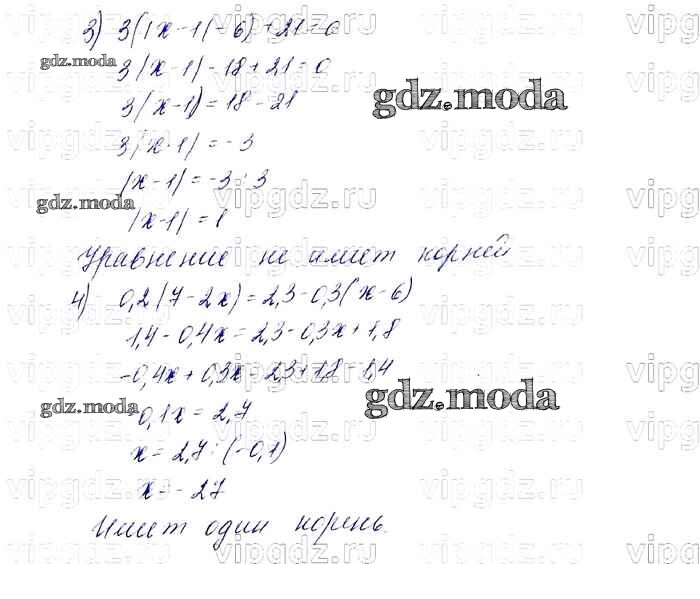 3) 3(|x-1|-6)+21=0
3|x-1|-18+21=0
gdz.moda
3|x-1|=18-21
gdz.moda
3|x-1|=-3
|x-1|=-3:3
gdz.moda
|x-1|=1
Уравнение не имеет корней
4) 0,2(7-2x)=2,3-0,3(x-6)
1,4-0,4x=2,3-0,3x+1,8
-0,4x+0,3x=2,3+1,8-1,4
gdz.moda
gdz.moda
-0,1x=2,7
x=2,7:(-0,1)
x=-27
Имеет один корень.
vipgdz.ru